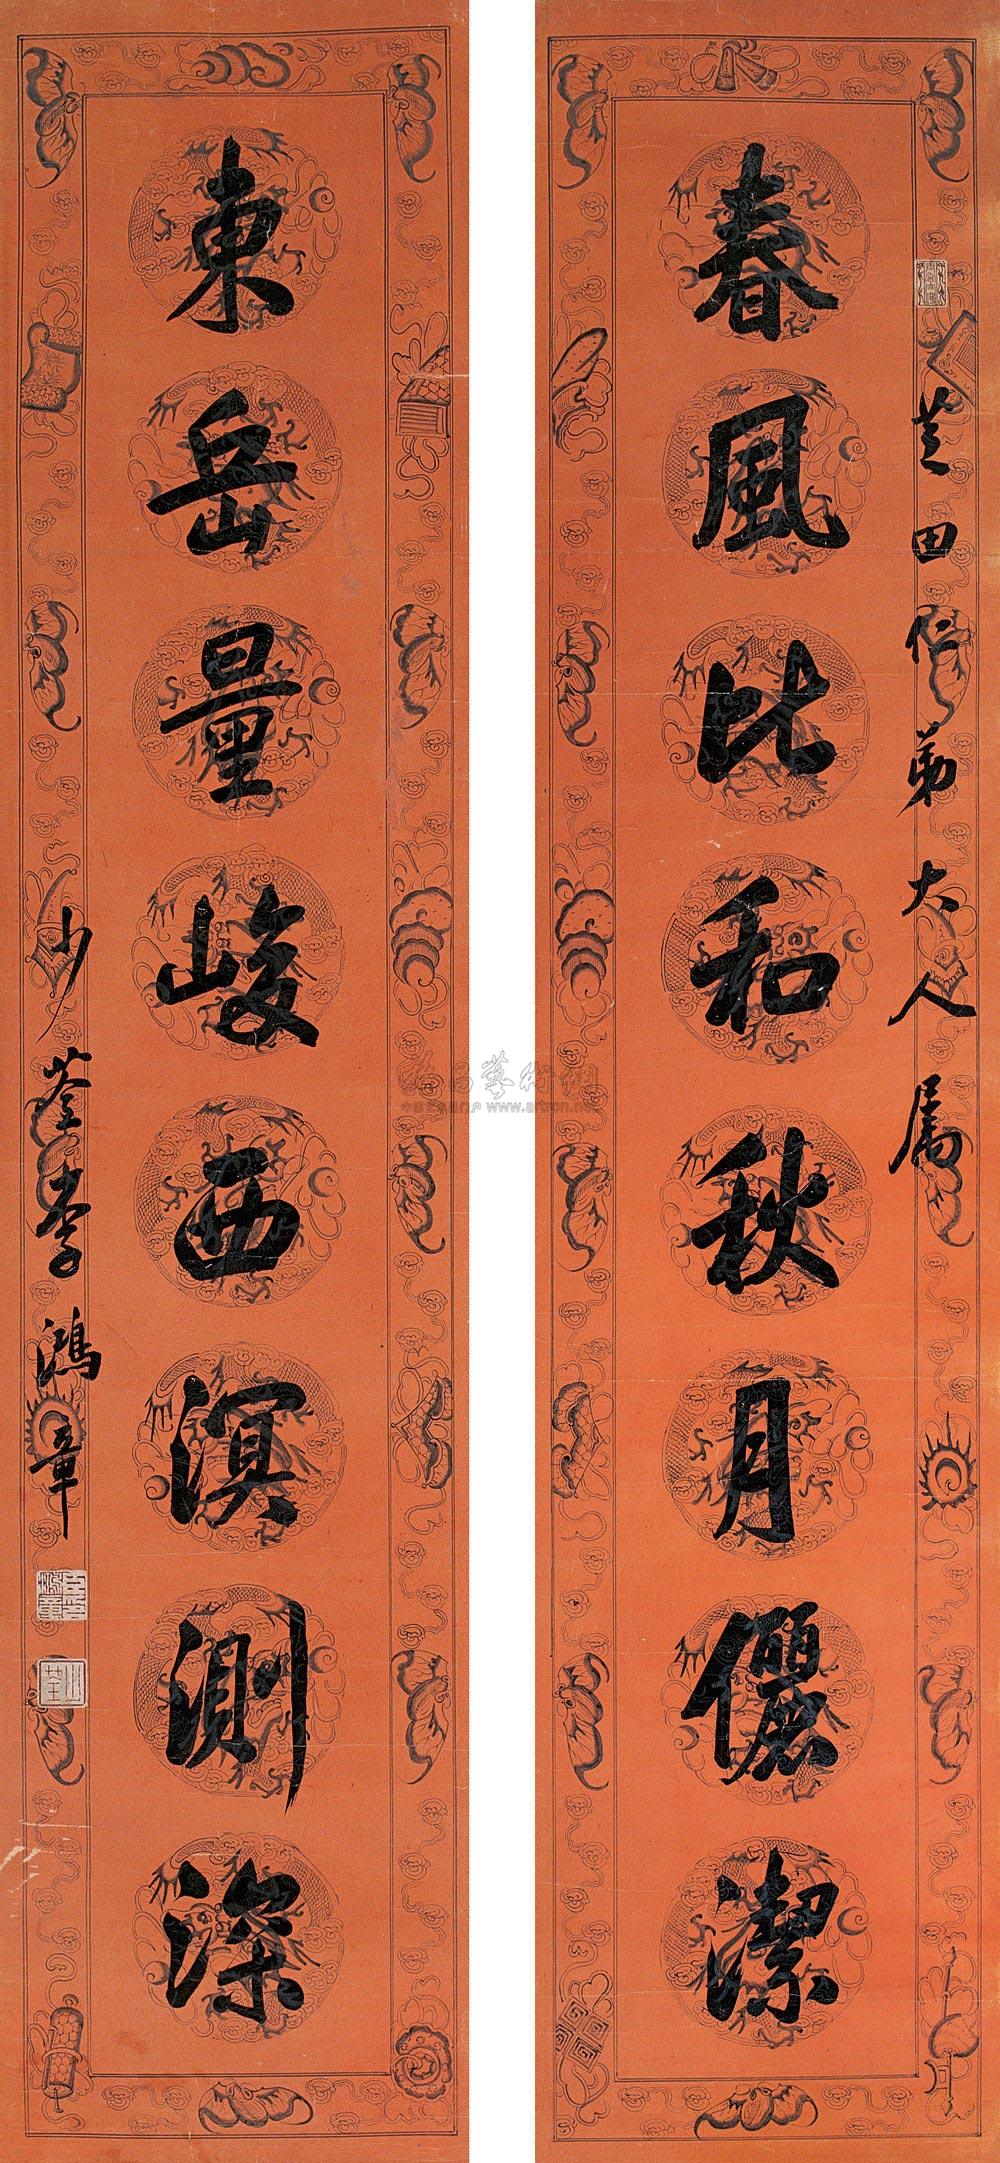 芝田仁弟大人属
春風比和秋月儷潔
東岳量峻西溟測深
少荃李鴻章
www.artron.net